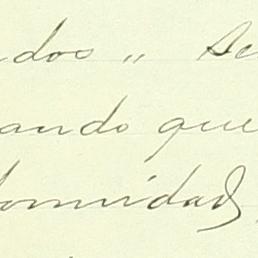 ndos „ Se
ando que
formidad,